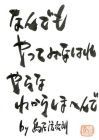 なんでも
やってみなはれ
やらな
わからしまへんで
by 鳥居信治郎